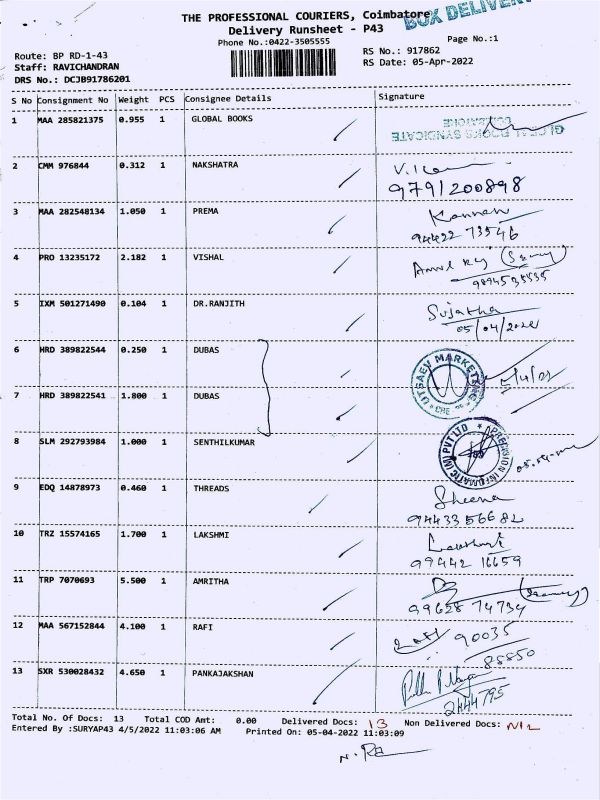 THE PROFESSIONAL COURIERS, Coimbatore
BOX DELIVERY
Delivery Runsheet - P43
Phone No.:0422-3505555
Page No.:1
Route: BP RD-1-43
RS No.: 917862
Staff: RAVICHANDRAN
RS Date: 05-Apr-2022
DRS No.: DCJB91786201
S No Consignment No Weight PCS Consignee Details Signature
1 MAA 285821375 0.955 1 GLOBAL BOOKS
GLOBAL BOOKS SYNDICATE
COIMBATORE
2 CMM 976844 0.312 1 NAKSHATRA
9791200898
3 MAA 282548134 1.050 1 PREMA
Kannan
94422 73546
4 PRO 13235172 2.182 1 VISHAL
9894535535
5 IXM 501271490 0.104 1 DR.RANJITH
Sujatha
05/04/2022
6 HRD 389822544 0.250 1 DUBAS
UTSAEV MARKETING
7 HRD 389822541 1.800 1 DUBAS
8 SLM 292793984 1.000 1 SENTHILKUMAR
PRECISION INFOMATIC (M) PVT LTD
9 EDQ 14878973 0.460 1 THREADS
Sheena
9443356682
10 TRZ 15574165 1.700 1 LAKSHMI
99442 16659
11 TRP 7070693 5.500 1 AMRITHA
99628 74734
12 MAA 567152844 4.100 1 RAFI
90035
85850
13 SXR 530028432 4.650 1 PANKAJAKSHAN
2444795
Total No. Of Docs: 13 Total COD Amt: 0.00 Delivered Docs: 13 Non Delivered Docs: NIL
Entered By :SURYAP43 4/5/2022 11:03:06 AM Printed On: 05-04-2022 11:03:09